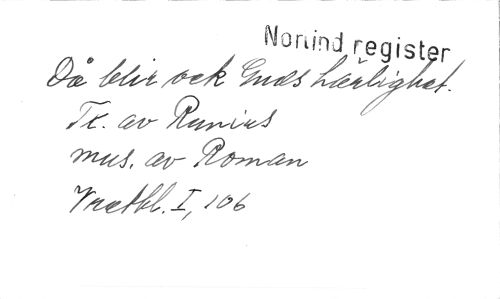 Norlind register
Då blir ock Guds härlighet.
Tx. av Runius
mus. av Roman
I, 106